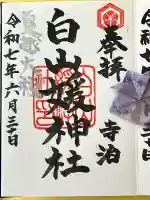 奉拝
寺泊
白山媛神社
令和七年六月三十日